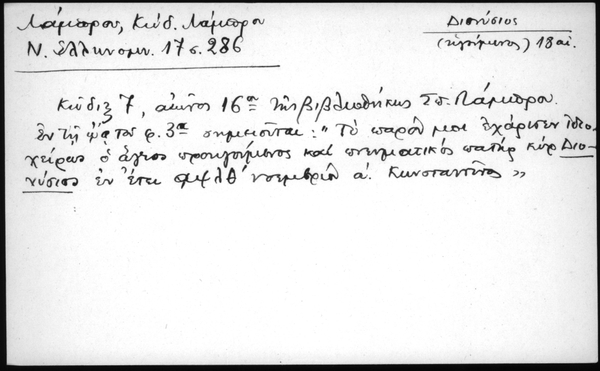 Λάμπρου, Κώδ. Λάμπρου
Ν. Ἑλληνομν. 17 σ. 286
Διονύσιος
(ἡγούμενος) 18 αἰ.
Κῶδιξ 7, αἰῶνος 16ου τῆς βιβλιοθήκης Σπ. Λάμπρου.
Ἐν τῇ τοῦ φ. 3α σημειοῦται: "Τὸ παρὸν μοι ἐχάρισεν ἰδιο-
χείρως ὁ ἅγιος προηγούμενος καὶ πνευματικὸς πατὴρ κὺρ Διο-
νύσιος ἐν ἔτει αψλθ´ νοεμβρίου α΄. Κωνσταντῖνος"